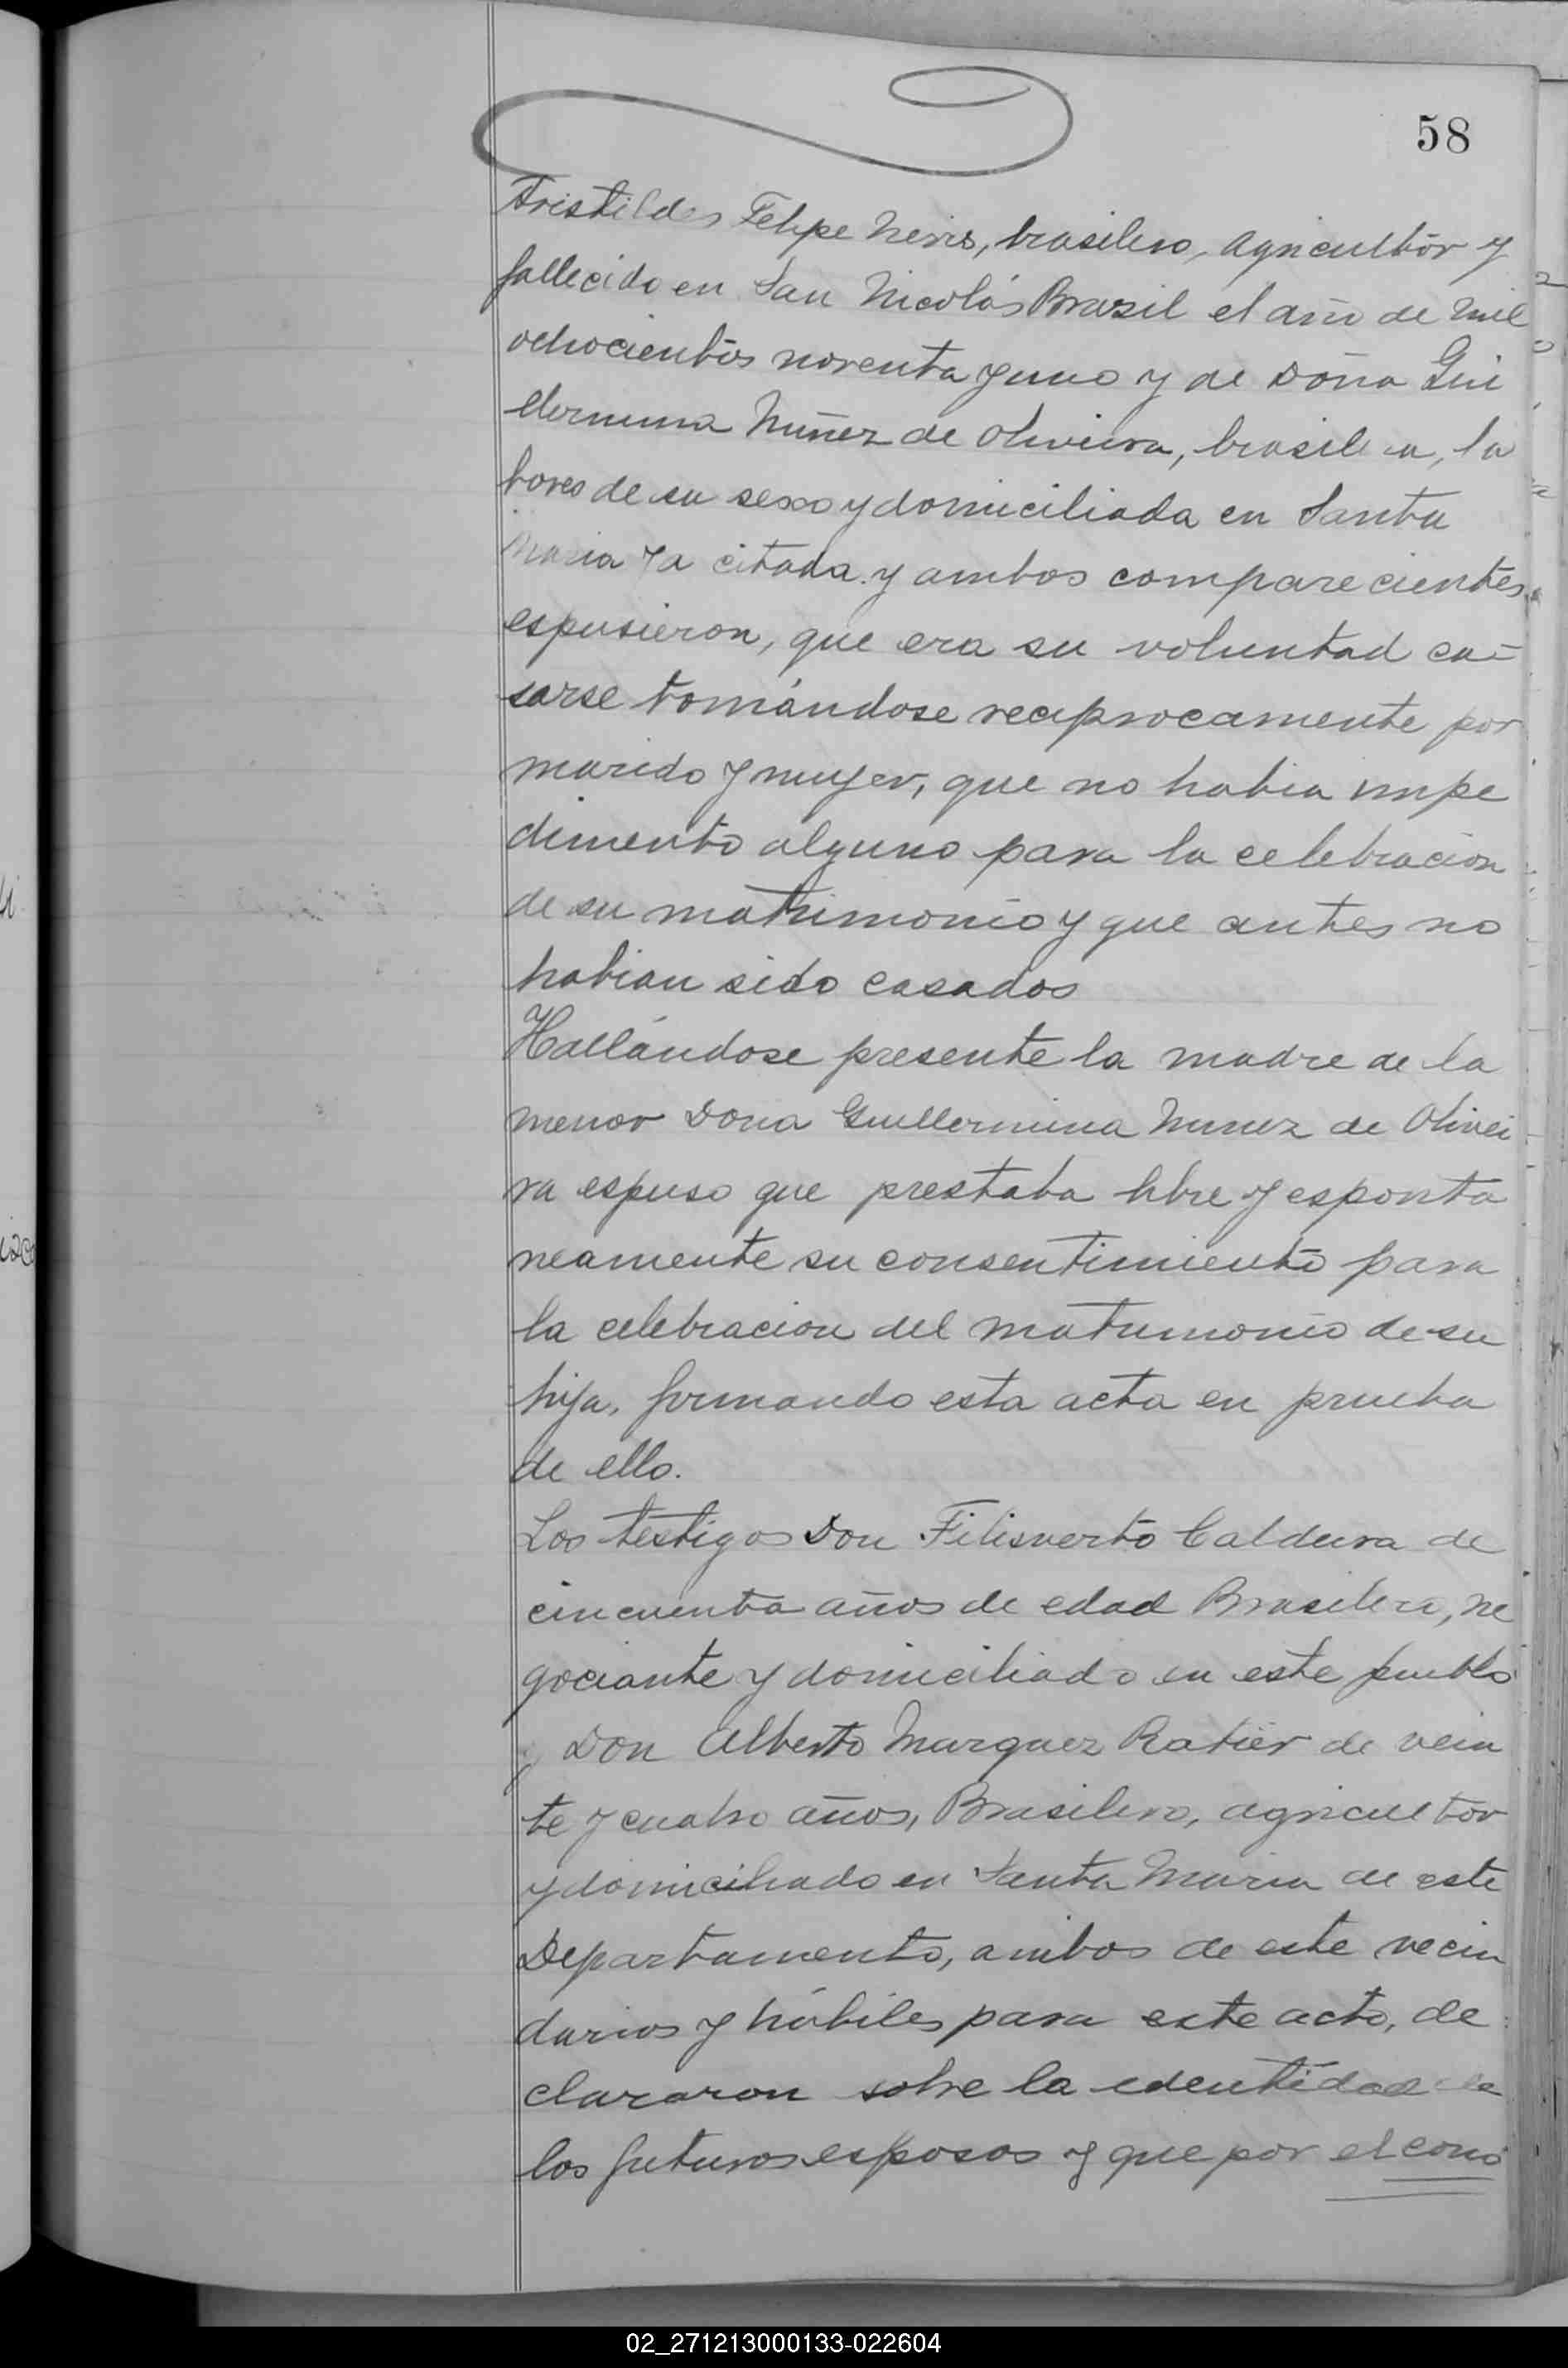 58
Aristildes Felipe Neris, brasilero, agricultor y
fallecido en San Nicolás Brazil el año de mil
ochocientos noventa y uno y de Doña Gui
llermina Nuñez de Oliveira, brasilera, la
bores de su sexo y domiciliada en Santa
Maria ya citada y ambos comparecientes
espusieron, que era su voluntad ca-
sarse tomándose reciprocamente por
marido y mujer, que no habia impe
dimento alguno para la celebracion
de su matrimonio y que antes no
habian sido casados
Hallándose presente la madre de la
menor Dona Guillermina Nunez de Olivei
ra espuso que prestaba libre y esponta
neamente su consentimiento para
la celebracion del matrimonio de su
hija, firmando esta acta en prueba
de ello.
Los testigos Don Filisverto Caldeira de
cincuenta años de edad Brasilero, ne
gociante y domiciliado en este pueblo
y Don Alberto Marquez Ratier de vein
te y cuatro años, Brasilero, agricultor
y domiciliado en Santa Maria de este
Departamento, ambos de este vecin
darios y hábiles para este acto, de
clararon sobre la identidad de
los futuros esposos y que por el cono
02_271213000133-022604